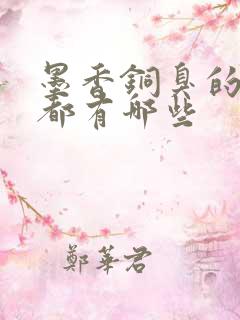 墨香銅臭的
都有哪些
鄭華君